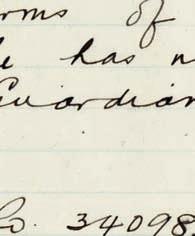 rms of
has n
Guardian
Co. 34098